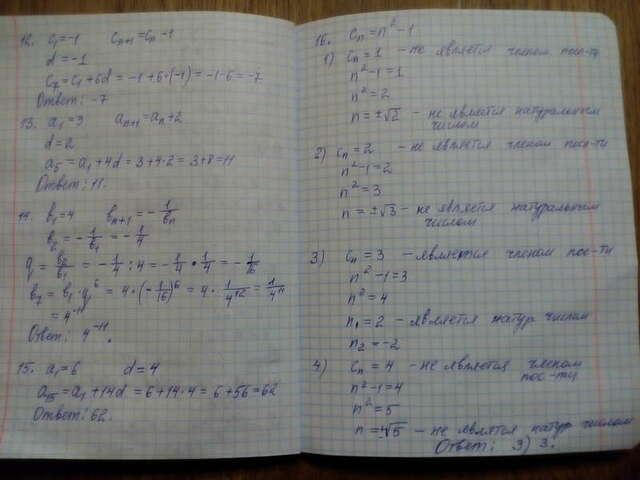 12. c₁=-1 cₙ₊₁=cₙ-1
d=-1
c₇=c₁+6d=-1+6·(-1)=-1-6=-7
Ответ: -7
13. a₁=3 aₙ₊₁=aₙ+2
d=2
a₅=a₁+4d=3+4·2=3+8=11
Ответ: 11.
14. b₁=4 bₙ₊₁=-1/bₙ
b₂=-1/b₁=-1/4
q=b₂/b₁=-1/4:4=-1/4·1/4=-1/16
b₇=b₁·q⁶=4·(-1/16)⁶=4·1/4¹²=1/4¹¹
=4⁻¹¹
Ответ: 4⁻¹¹.
15. a₁=6 d=4
a₁₅=a₁+14d=6+14·4=6+56=62
Ответ: 62.
16. cₙ=n²-1
1) cₙ=1 -не является членом посл-ти
n²-1=1
n²=2
n=±√2 -не является натуральным
числом
2) cₙ=2 -не является членом посл-ти
n²-1=2
n²=3
n=±√3 -не является натуральным
числом
3) cₙ=3 -является членом пос-ти
n²-1=3
n²=4
n₁=2 -является натур числом
n₂=-2
4) cₙ=4 -не является членом
пос-ти
n²-1=4
n²=5
n=±√5 -не является натур числом
Ответ: 3) 3.